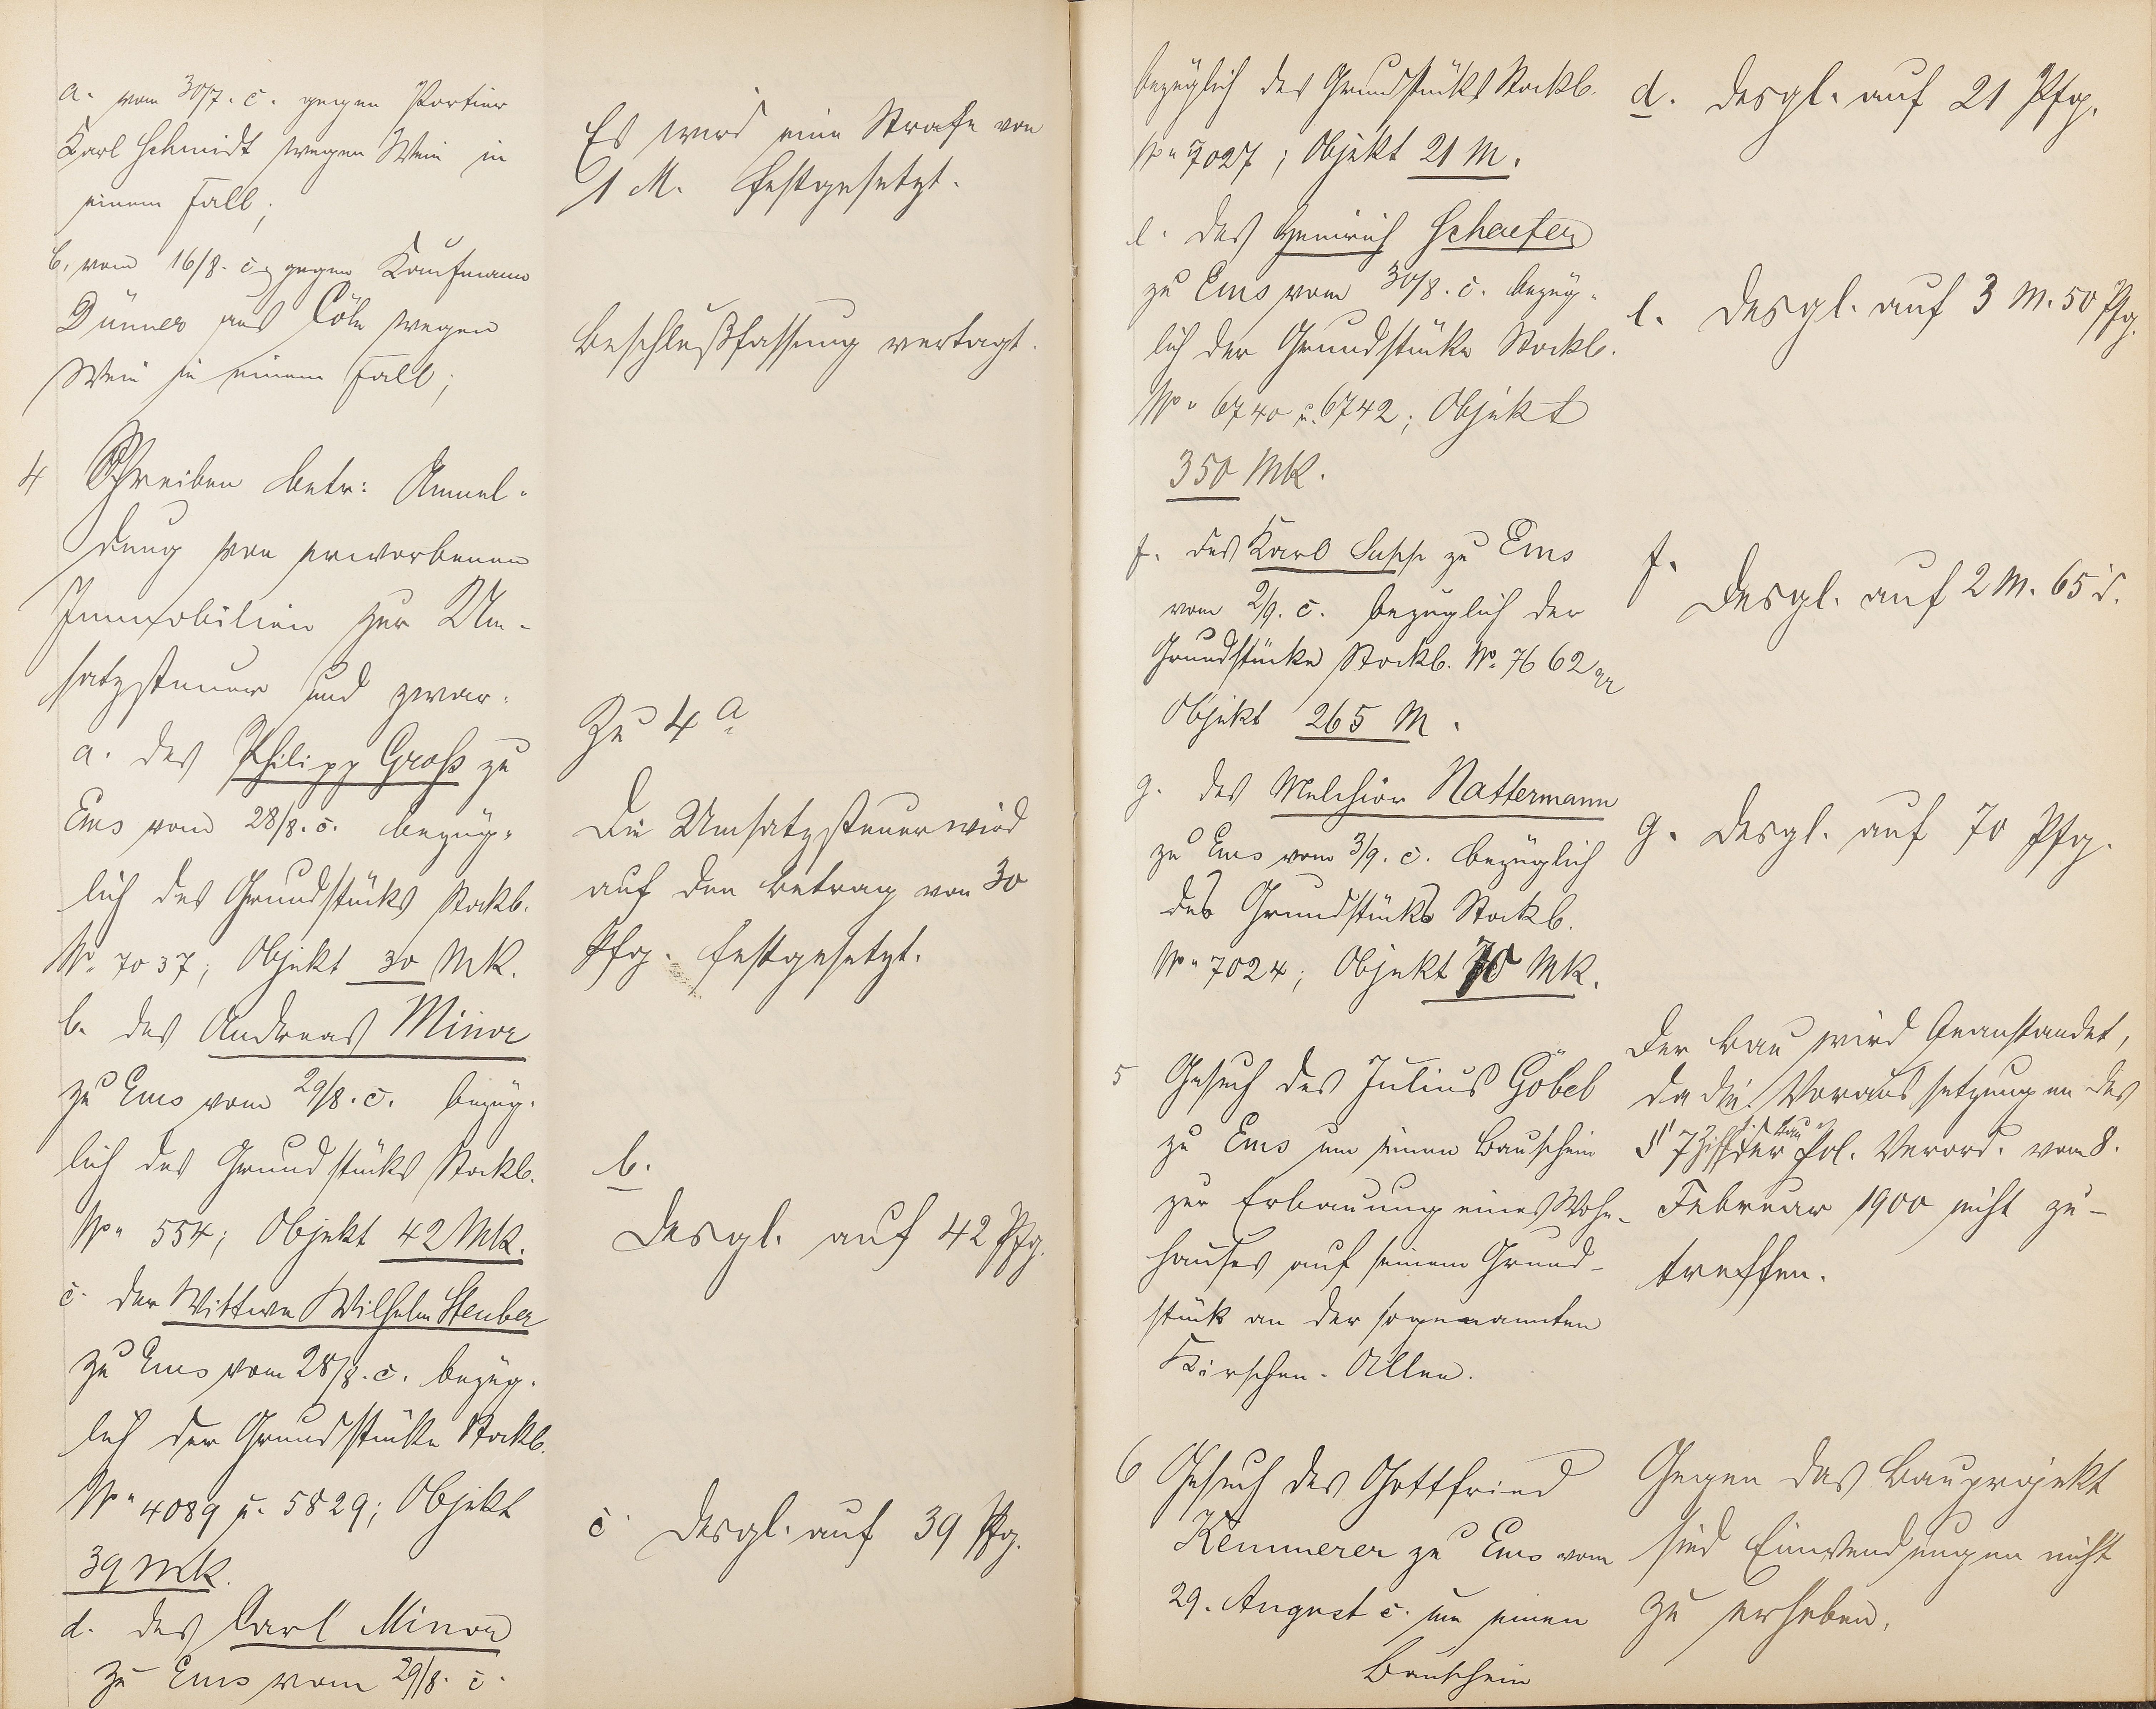 a. vom 30/7. c. gegen Portier
Karl Schmidt wegen Wein in
einem Fall;
b. vom 16/8. c. gegen Kaufmann
Dünner aus Cöln wegen
Wein in einem Fall;
4 Schreiben betr: Anmel-
dung von erworbenen
Immobilien zur Um-
satzsteuer und zwar:
a. des Philipp Groß zu
Ems vom 28/8. c. bezüg-
lich des Grundstücks Stockb.
No. 7037; Objekt 30 Mk.
b. des Andreas Minor
zu Ems vom 29/8. c. bezüg-
lich des Grundstücks Stockb.
No. 554; Objekt 42 Mk.
c. der Wittwe Wilhelm Steuber
zu Ems vom 28/8. c. bezüg-
lich der Grundstücke Stockb.
No. 4089 u. 5829; Objekt
39 Mk.
d. des Carl Minor
zu Ems vom 29/8. c.
Es wird eine Strafe von
1 M. festgesetzt.
Beschlußfassung vertagt.
Zu 4 a
Die Umsatzsteuer wird
auf den Betrag von 30
Pfg. festgesetzt.
b.
Desgl. auf 42 Pfg.
c. Desgl. auf 39 Pfg.
bezüglich des Grundstücks Stockb.
No. 7027; Objekt 21 M.
e. des Heinrich Schaefer
zu Ems vom 30/8. c. bezüg-
lich der Grundstücke Stockb.
No. 6740 u. 6742; Objekt
350 Mk.
f. des Karl zu Ems
vom 2/9. c. bezüglich der
Grundstücke Stockb. No. 7662
Objekt 265 M.
g. des Melchior Nattermann
zu Ems vom 3/9. c. bezüglich
des Grundstücks Stockb.
No. 7024; Objekt 70 Mk.
5 Gesuch des Julius Göbel
zu Ems um einen Bauschein
zur Erbauung eines Wohn-
hauses auf seinem Grund-
stück an der sogenannten
Kirschen-Allee.
6 Gesuch des Gottfried
Kemmerer zu Ems vom
29. August c. um einen
Bauschein
d. Desgl. auf 21 Pfg.
e. Desgl. auf 3 M. 50 Pfg.
f.
Desgl. auf 2 M. 65 d.
g. Desgl. auf 70 Pfg.
Der Bau wird beanstandet,
da die Voraussetzungen des
§ 7 Ziff der Bau Pol. Verord. vom 8.
Februar 1900 nicht zu-
treffen.
Gegen das Bauprojekt
sind Einwendungen nicht
zu erheben.